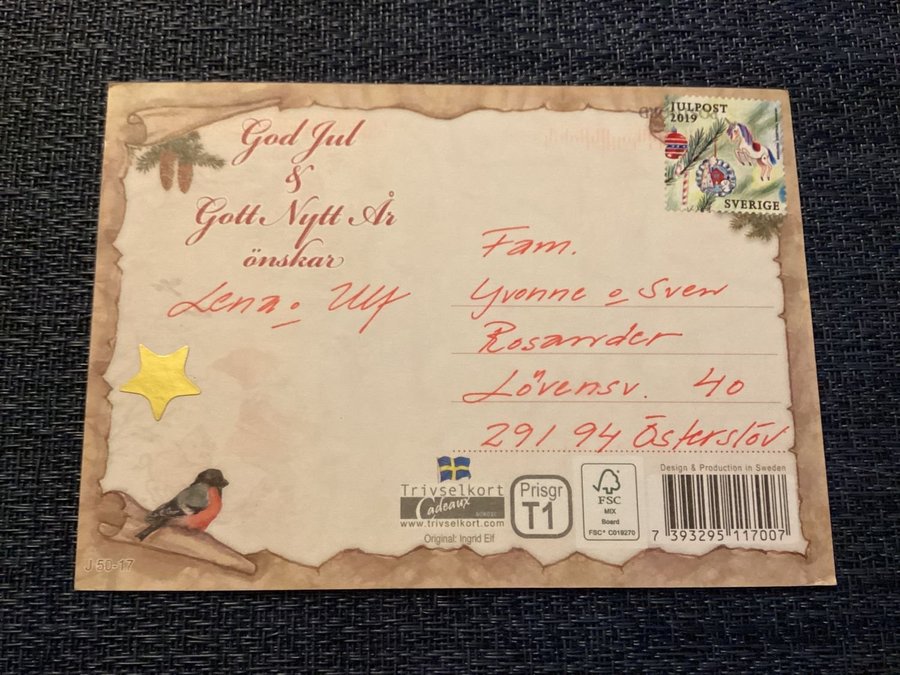 God Jul
&
Gott Nytt År
önskar
Lena o Ulf
JULPOST
2019
SVERIGE
Fam.
Yvonne o Sven
Rosander
Lövensv. 40
291 94 Österslöv
Trivselkort
Cadeaux
www.trivselkort.com
Original: Ingrid Elf
Prisgr
T1
FSC
MIX
Board
FSC® C019270
Design & Production in Sweden
7 393295 117007
J 50-17